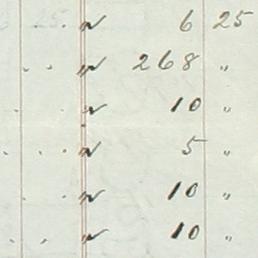 " 6 25
. . " 268 "
" 10 "
. . . " 5 "
. " 10 "
. . " 10 "